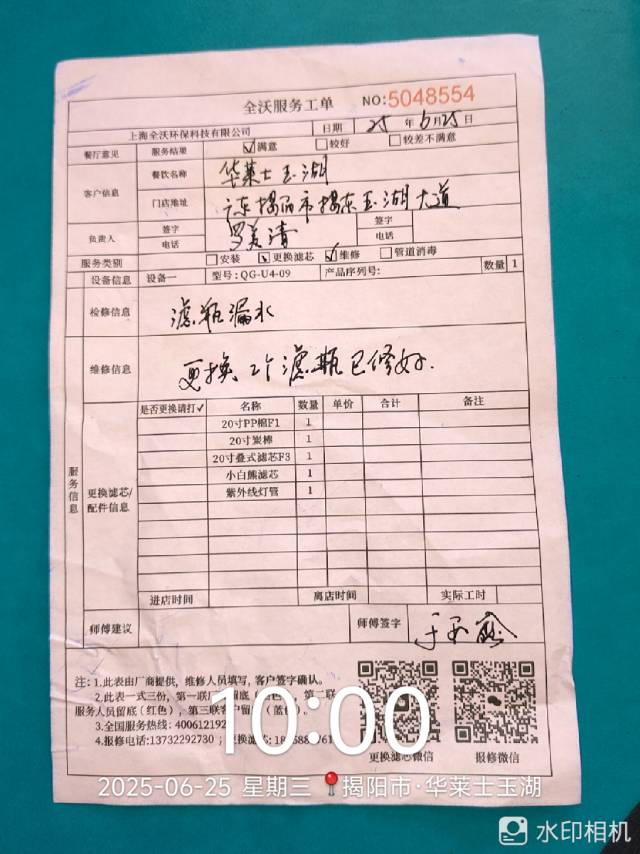 全沃服务工单 NO:5048554
上海全沃环保科技有限公司 日期 25年6月25日
餐厅意见 服务结果 ☑满意 □较好 □较差不满意
客户信息 餐饮名称 华莱士玉湖
门店地址 广东揭阳市揭东玉湖大道
负责人 签字 签字
电话 电话
服务类别 □安装 ☑更换滤芯 ☑维修 □管道消毒
设备信息 设备一 型号:QG-U4-09 产品序列号: 数量 1
检修信息 滤瓶漏水
维修信息 更换2个滤瓶已修好.
服务信息
更换滤芯/配件信息
是否更换请打✓ 名称 数量 单价 合计 备注
20寸PP棉F1 1
20寸炭棒 1
20寸叠式滤芯F3 1
小白熊滤芯 1
紫外线灯管 1
进店时间 离店时间 实际工时
师傅建议 师傅签字
注: 1.此表由厂商提供, 维修人员填写, 客户签字确认。
2.此表一式三份, 第一联厂 留底 第二联
服务人员留底(红色), 第三联客户留 (蓝色)
3.全国服务热线: 400612192
4.报修电话:13732292730 ; 更换滤芯:
更换滤芯微信 报修微信
10:00
2025-06-25 星期三 📍揭阳市·华莱士玉湖
水印相机